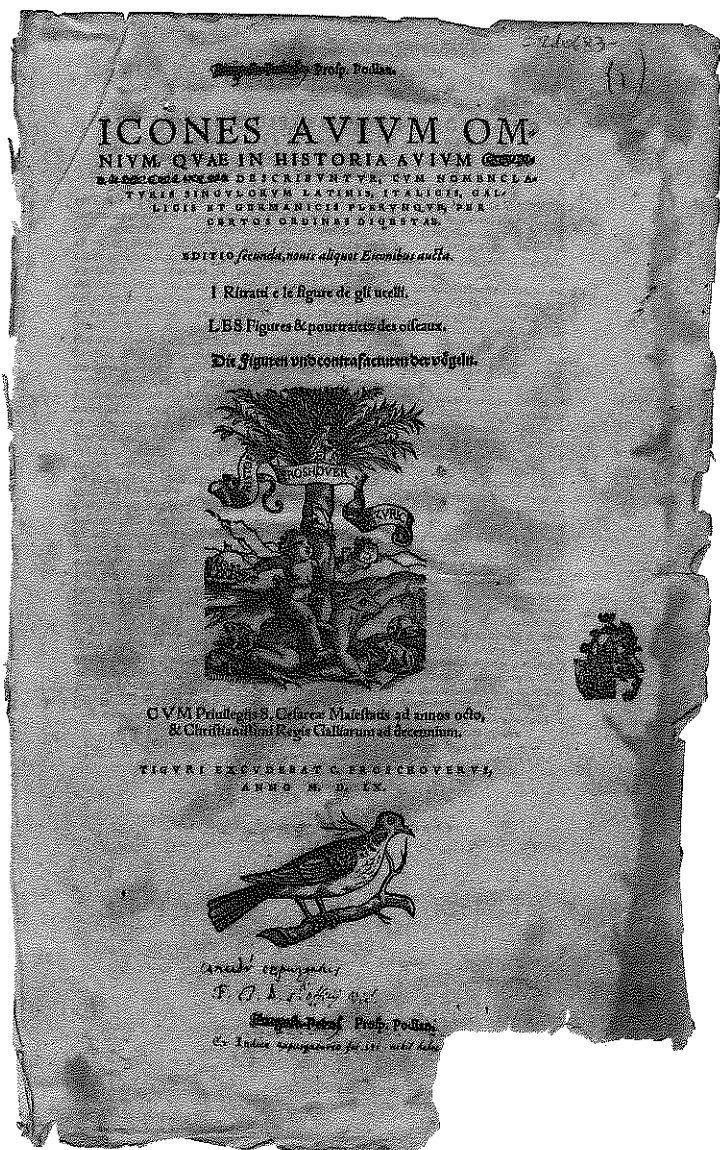 Prosp. Podian.
(1)
ICONES AVIVM OM-
NIVM, QVAE IN HISTORIA AVIVM
DESCRIBVNTVR, CVM NOMENCLA-
TVRIS SINGVLORVM LATINIS, ITALICIS, GAL-
LICIS ET GERMANICIS PLERVNQVE, PER
CERTOS ORDINES DIGESTAE.
EDITIO secunda, nouis aliquot Eiconibus aucta.
I Ritratti e le figure de gli vcelli.
LES Figures & pourtraictz des oiseaux.
Die Figuren vnd contrafacturen der vöglen.
ROSHOVER
CVM Priuilegijs S. Cæsareæ Maiestatis ad annos octo,
& Christianissimi Regis Galliarum ad decennium.
TIGVRI EXCVDEBAT C. FROSCHOVERVS,
ANNO M. D. LX.
Prosp. Podian.